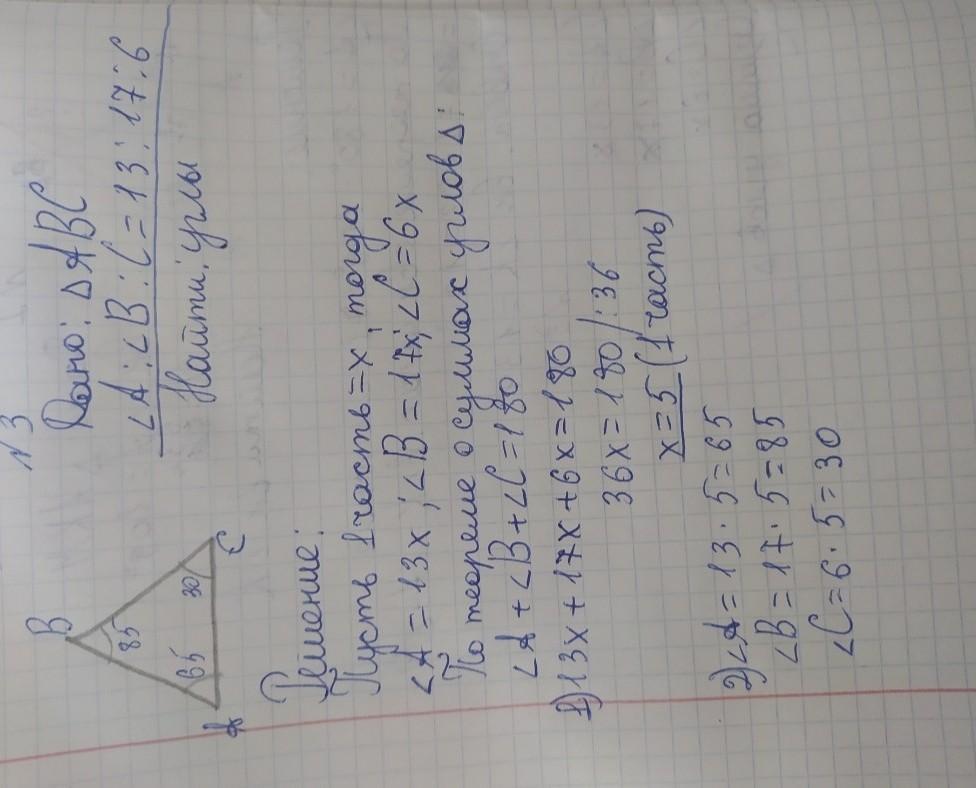 N 3
Дано: ΔABC
∠A:∠B:C=13:17:6
Найти: углы
B
85
65
30
A
C
Решение:
Пусть 1 часть=x, тогда
∠A=13x; ∠B=17x; ∠C=6x
По теореме о суммах углов Δ:
∠A+∠B+∠C=180
1) 13x+17x+6x=180
36x=180/:36
x=5 (1 часть)
2) ∠A=13·5=65
∠B=17·5=85
∠C=6·5=30